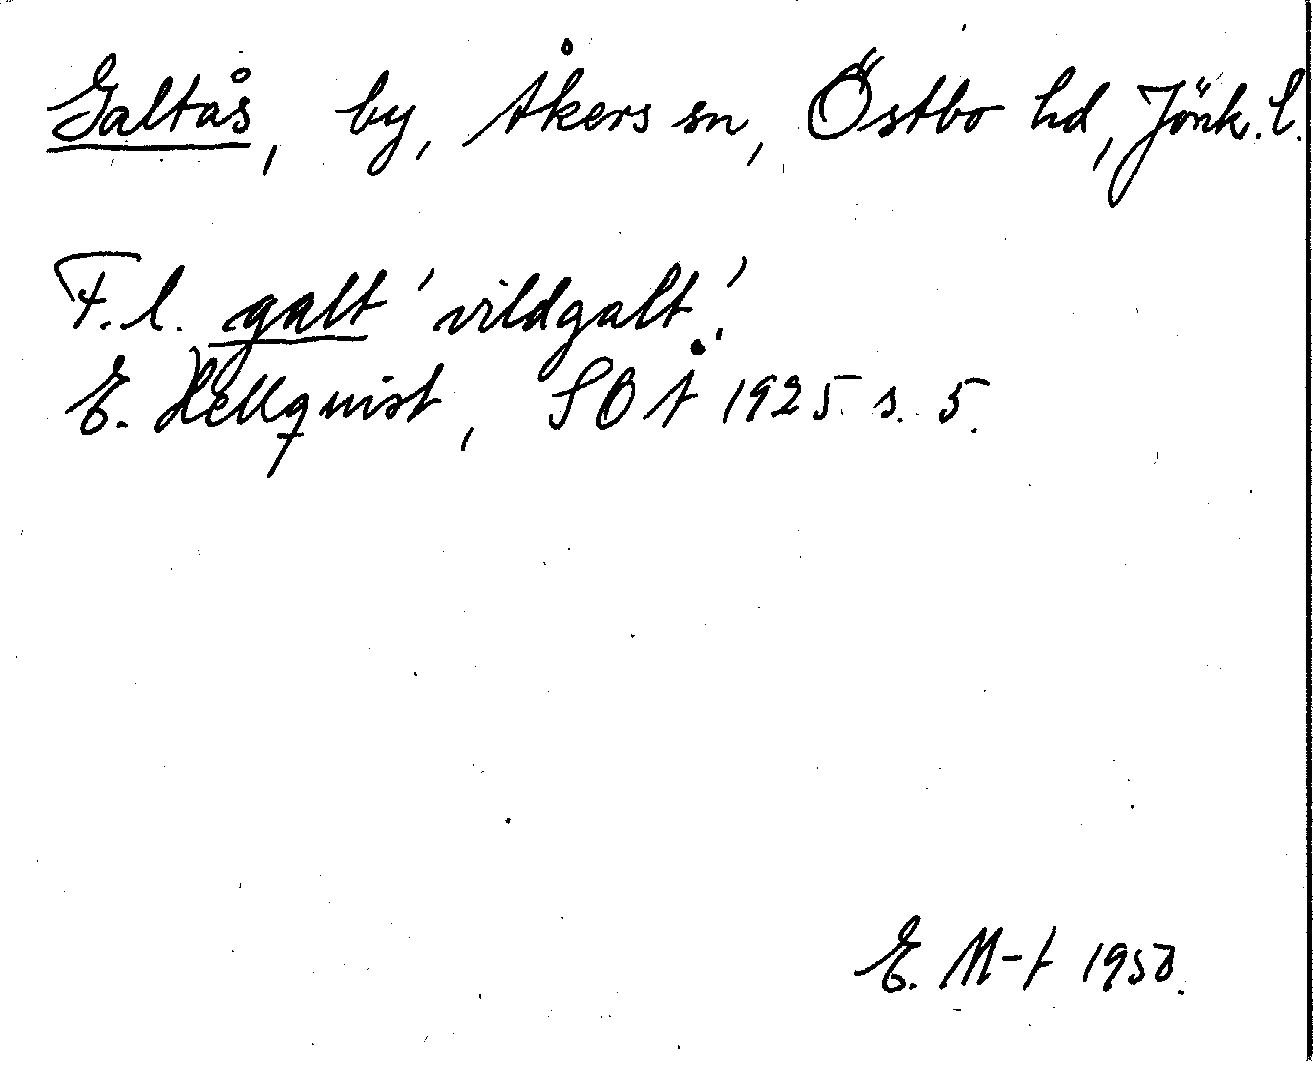 Galtås, by, Åkers sn, Östbo hd, Jönk. l.
F.l. galt 'vildgalt'.
E. Hellquist, SOÅ 1925 s. 5.
E. M-t 1950.